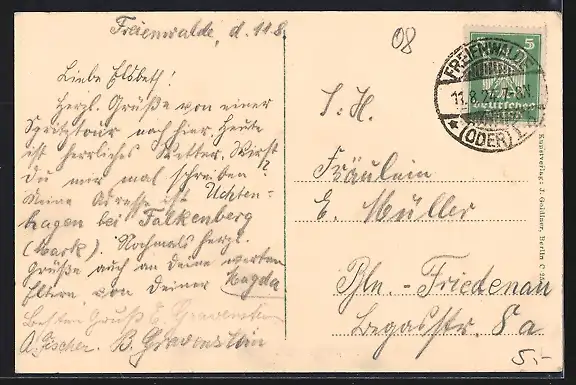 Freienwalde, d. 11.8.
Liebe Elsbeth!
Herzl. Grüße von einer
Spritztour nach hier. Heute
ist herrliches Wetter. Wirst
Du mir mal schreiben?
Meine Adresse ist Uchten-
hagen bei Falkenberg
(Mark). Nochmals herzl.
Grüße auch an deine werten
Eltern, von deiner Magda
Besten Gruß E. Gravenstein
A. Fischer. B. Gravenstein
08
5
FREIENWALDE
11.8.27. 7-8N
* (ODER)
S. H.
Fräulein
E. Müller
Bln.-Friedenau
Begasstr. 8a
5,-
Kunstverlag: J. Goldiner, Berlin C